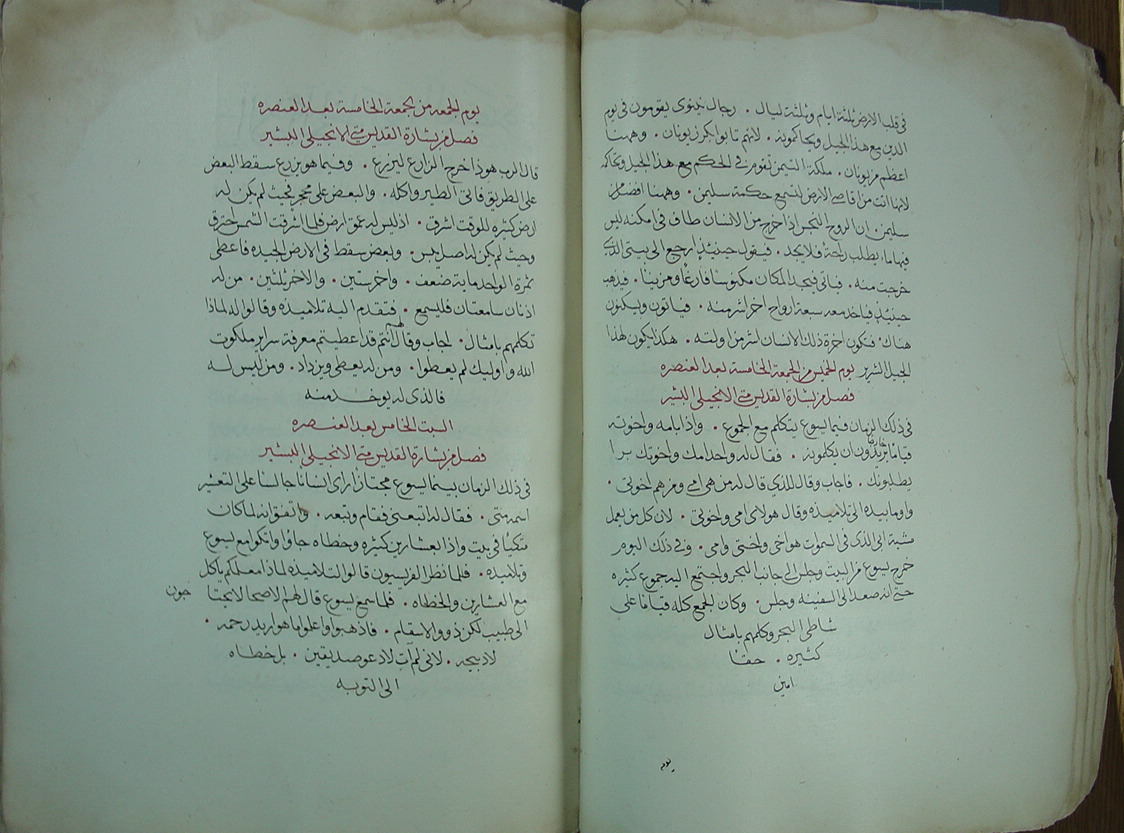 في قلب الارض ثلثة ايام وثلثة ليال . رجال نينوى يقومون في يوم
الدين مع هذا الجيل ويحاكمونه . لانهم تابوا بكرز يونان . وههنا
اعظم من يونان . ملكة التيمن تقوم في الحكم مع هذا الجيل وتحاكمه
لانها اتت من اقاصي الارض لتسمع حكمة سليمن . وههنا افضل من
سليمن ان الروح النجس اذا خرج من الانسان طاف في امكنه ليس
فيها ماء يطلب راحة فلا يجد . فيقول حينيذ ارجع الى بيتي الذي
خرجت منه . فياتي فيجد المكان مكنوسا فارغا ومزينا . فيذهب
حينيذ فياخذ معه سبعة ارواح اخر اشر منه . فياتون ويسكنون
هناك فتكون اخرة ذلك الانسان اشر من اولته . هكذا يكون لهذا
الجيل الشرير يوم الخميس من الجمعة الخامسة بعد العنصره
فصل من بشارة القديس متى الانجيلي البشير
في ذلك الزمان فيما يسوع يتكلم مع الجموع . واذا بامه واخوته
قياما يريدون ان يكلمونه . فقال له واحد امك واخوتك برا
يطلبونك . فاجاب وقال للذي قال له من هي امي ومن هم اخوتي .
واوما بيده الى تلاميذه وقال هولاي امي واخوتي . لان كل من يعمل
مشية ابي الذي في السموات هو اخي واختي وامي . وفي ذلك اليوم
خرج يسوع من البيت وجلس الى جانب البحر واجتمع اليه جموع كثيره
حتى انه صعد الى السفينه وجلس . وكان الجمع كله قياما على
شاطى البحر وكلمهم بامثال
كثيره . حقا
امين
يوم
يوم الجمعه من الجمعة الخامسة بعد العنصره
فصل من بشارة القديس متى الانجيلي البشير
قال الرب هوذا خرج الزارع ليزرع . وفيما هو يزرع سقط البعض
على الطريق فاتى الطير واكله . والبعض على صخر بحيث لم يكن له
ارض كثيره للوقت اشرق . اذ ليس له عمق ارض فلما اشرقت الشمس احترق
وحيث لم يكن له اصل يبس . وبعض سقط في الارض الجيده فاعطى
ثمرة الواحد ماية ضعف . واخر ستين . والاخر ثلثين . من له
اذنان سامعتان فليسمع . فتقدم اليه تلاميذه وقالوا له لماذا
تكلمهم بامثال . اجاب وقال لهم انتم قد اعطيتم معرفة سراير ملكوت
الله واوليك لم يعطوا . ومن له يعطى ويزداد . ومن ليس له
فالذي له يوخذ منه
السبت الخامس بعد العنصره
فصل من بشارة القديس متى الانجيلي البشير
في ذلك الزمان بينما يسوع مجتاز اراى انسانا جالسا على التعشير
اسمه متى . فقال له اتبعني فقام وتبعه . واتفق انه لما كان
متكيا في بيت واذا العشارين كثيره وخطاه جاؤا واتكوا مع يسوع
وتلاميذه . فلما نظر الفريسيون قالوا لتلاميذه لماذا معلمكم ياكل
مع العشارين والخطاه . فلما سمع يسوع قال لهم الاصحا لا يحتا
جون
الى طبيب لكن ذوو الاسقام . فاذهبوا واعلموا ما هو اريد رحمه .
لا ذبيحه . لاني لم ات لادعو صديقين . بل خطاه
الى التوبه